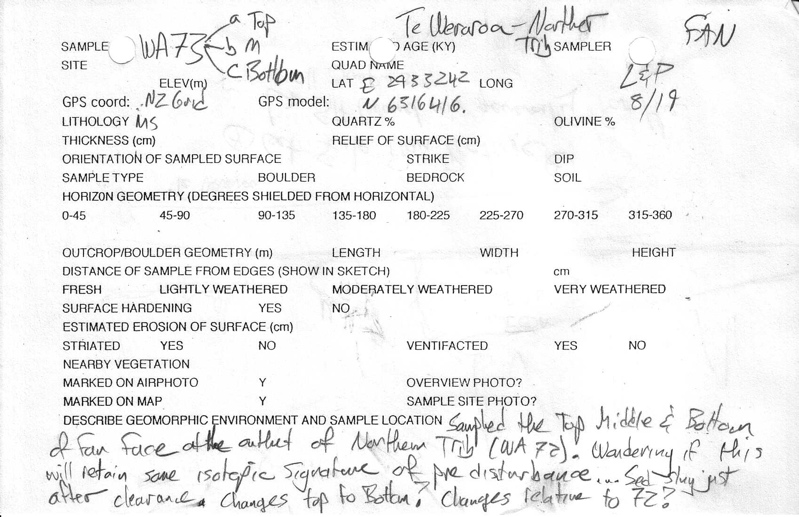 a Top
Te Weraroa - Norther
SAMPLE WA73 b M ESTIM D AGE (KY) Trib SAMPLER FAN
SITE c Bottom QUAD NAME
ELEV(m) LAT E 2933242 LONG L&P
GPS coord: NZ Grid GPS model: N 6316416. 8/19
LITHOLOGY MS QUARTZ % OLIVINE %
THICKNESS (cm) RELIEF OF SURFACE (cm)
ORIENTATION OF SAMPLED SURFACE STRIKE DIP
SAMPLE TYPE BOULDER BEDROCK SOIL
HORIZON GEOMETRY (DEGREES SHIELDED FROM HORIZONTAL)
0-45 45-90 90-135 135-180 180-225 225-270 270-315 315-360
OUTCROP/BOULDER GEOMETRY (m) LENGTH WIDTH HEIGHT
DISTANCE OF SAMPLE FROM EDGES (SHOW IN SKETCH) cm
FRESH LIGHTLY WEATHERED MODERATELY WEATHERED VERY WEATHERED
SURFACE HARDENING YES NO
ESTIMATED EROSION OF SURFACE (cm)
STRIATED YES NO VENTIFACTED YES NO
NEARBY VEGETATION
MARKED ON AIRPHOTO Y OVERVIEW PHOTO?
MARKED ON MAP Y SAMPLE SITE PHOTO?
DESCRIBE GEOMORPHIC ENVIRONMENT AND SAMPLE LOCATION Sampled the Top Middle & Bottom
of Fan Face at the outlet of Northern Trib (WA 72). Wondering if this
will retain some isotopic signature of pre disturbance... Sed just
after clearance. Changes top to Bottom? Changes relative to 72?